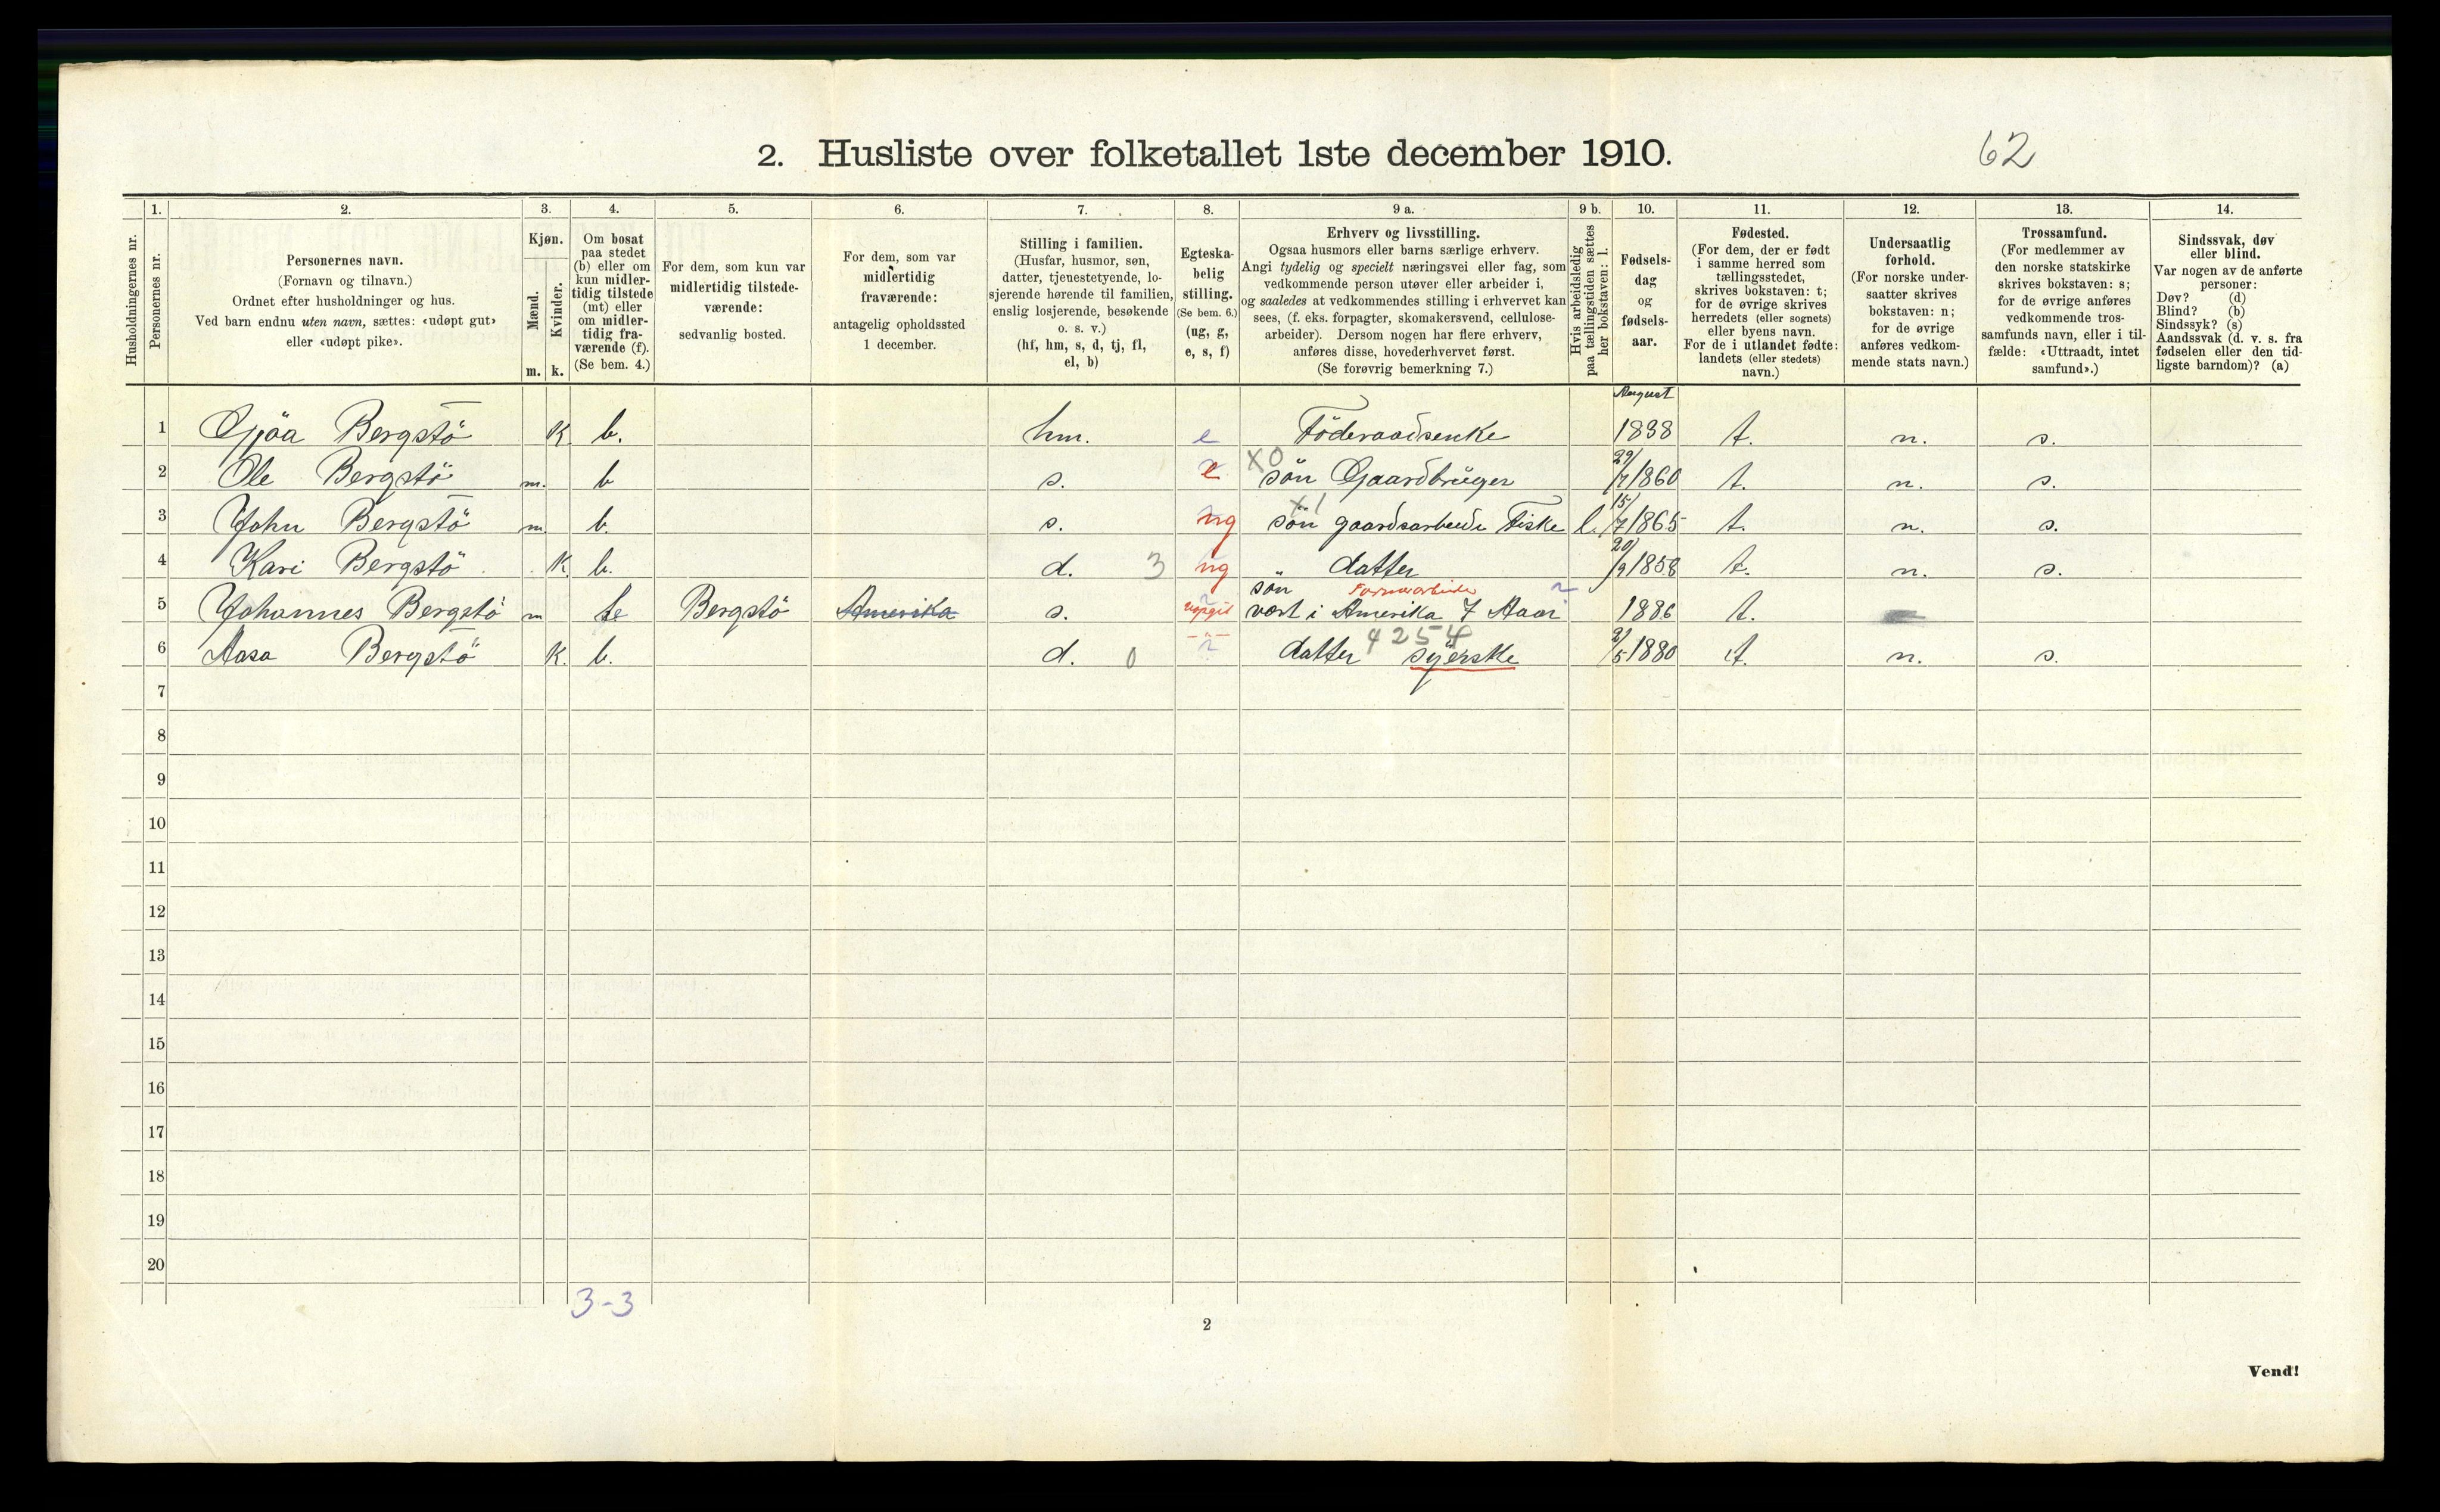 2. Husliste over folketallet 1ste december 1910.
62
1. 2. 3. 4. 5. 6. 7. 8. 9 a. 9 b. 10. 11. 12. 13. 14.
Husholdningernes nr.
Personernes nr.
Personernes navn.
(Fornavn og tilnavn.)
Ordnet efter husholdninger og hus.
Ved barn endnu uten navn, sættes: «udøpt gut»
eller «udøpt pike».
Kjøn.
Mænd.
Kvinder.
m. k.
Om bosat
paa stedet
(b) eller om
kun midler-
tidig tilstede
(mt) eller
om midler-
tidig fra-
værende (f).
(Se bem. 4.)
For dem, som kun var
midlertidig tilstede-
værende:
sedvanlig bosted.
For dem, som var
midlertidig
fraværende:
antagelig opholdssted
1 december.
Stilling i familien.
(Husfar, husmor, søn,
datter, tjenestetyende, lo-
sjerende hørende til familien,
enslig losjerende, besøkende
o. s. v.)
(hf, hm, s, d, tj, fl,
el, b)
Egteska-
belig
stilling.
(Se bem. 6.)
(ug, g,
e, s, f)
Erhverv og livsstilling.
Ogsaa husmors eller barns særlige erhverv.
Angi tydelig og specielt næringsvei eller fag, som
vedkommende person utøver eller arbeider i,
og saaledes at vedkommendes stilling i erhvervet kan
sees, (f. eks. forpagter, skomakersvend, cellulose-
arbeider). Dersom nogen har flere erhverv,
anføres disse, hovederhvervet først.
(Se forøvrig bemerkning 7.)
Hvis arbeidsledig
paa tællingstiden sættes
her bokstaven: l.
Fødsels-
dag
og
fødsels-
aar.
Fødested.
(For dem, der er født
i samme herred som
tællingsstedet,
skrives bokstaven: t;
for de øvrige skrives
herredets (eller sognets)
eller byens navn.
For de i utlandet fødte:
landets (eller stedets)
navn.)
Undersaatlig
forhold.
(For norske under-
saatter skrives
bokstaven: n;
for de øvrige
anføres vedkom-
mende stats navn.)
Trossamfund.
(For medlemmer av
den norske statskirke
skrives bokstaven: s;
for de øvrige anføres
vedkommende tros-
samfunds navn, eller i til-
fælde: «Uttraadt, intet
samfund».)
Sindssvak, døv
eller blind.
Var nogen av de anførte
personer:
Døv? (d)
Blind? (b)
Sindssyk? (s)
Aandssvak (d. v. s. fra
fødselen eller den tid-
ligste barndom)? (a)
August
1 Gjöa Bergstö K b. hm. e Föderaadsenke 1838 t. n. s.
X0
2 Ole Bergstö m. b s. e sön Gaardbrüger 29/7 1860 t. n. s.
X1
3 John Bergstö m b. s. ug sön gaardsarbeide Fiske l. 15/7 1865 t. n. s.
4 Kari Bergstö K. b. d. 3 ug datter 20/9 1858 t. n. s.
sön Farmarbeide
5 Johannes Bergstö m Bergstö Amerika s. vært i Amerika 7 Aar 1886 t.
4254
6 Aasa Bergstö K. b. d. 0 datter syerske 2/5 1880 t. n. s.
7
8
9
10
11
12
13
14
15
16
17
18
19
20
3-3
2
Vend!